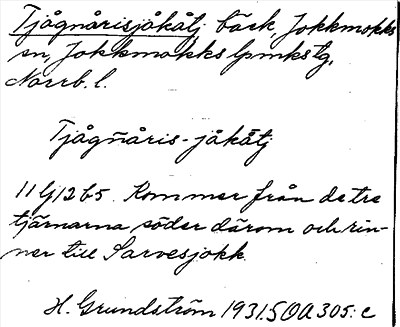 Tjågnårisjåkåtj, bäck, Jokkmokks
sn, Jokkmokks lpmkstg,
Norrb. l.
Tjågñåris-jåkåtj
11 G 12 b 5. Kommer från de tre
tjärnarna söder därom och rin-
ner till Sarvesjokk.
H. Grundström 1931. SOA 305: c